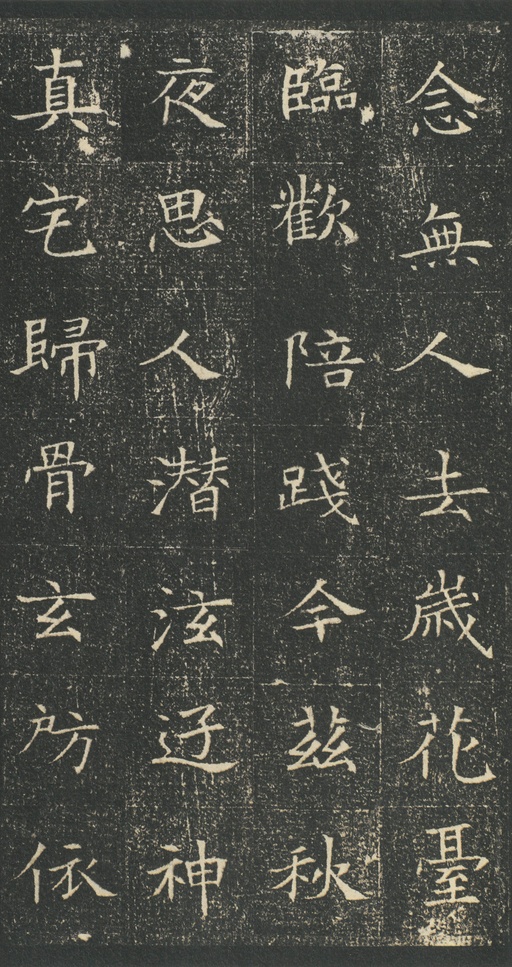 念無人去歲花臺
臨歡陪踐今茲秋
夜思人潛泫迂神
真宅歸骨玄房依